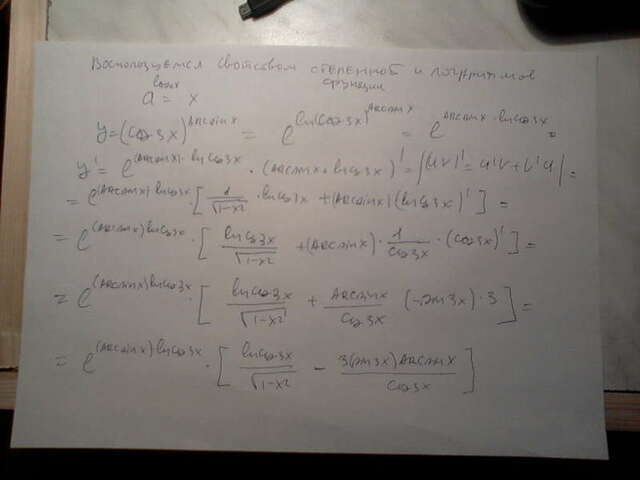 Воспользуемся свойством степенной и логарифмов
функции
a^{log_a x} = x
y = (cos 3x)^{arcsin x} = e^{ln(cos 3x)^{arcsin x}} = e^{arcsin x · ln cos 3x} =
y' = e^{(arcsin x) · ln cos 3x} · (arcsin x · ln cos 3x)' = |(uv)' = u'v + v'u| =
= e^{(arcsin x) ln cos 3x} · [1/√(1-x²) · ln cos 3x + (arcsin x)(ln cos 3x)'] =
= e^{(arcsin x) ln cos 3x} · [ln cos 3x/√(1-x²) + (arcsin x) · 1/cos 3x · (cos 3x)'] =
= e^{(arcsin x) ln cos 3x} · [ln cos 3x/√(1-x²) + arcsin x/cos 3x (-sin 3x) · 3] =
= e^{(arcsin x) ln cos 3x} · [ln cos 3x/√(1-x²) - 3(sin 3x) arcsin x/cos 3x]